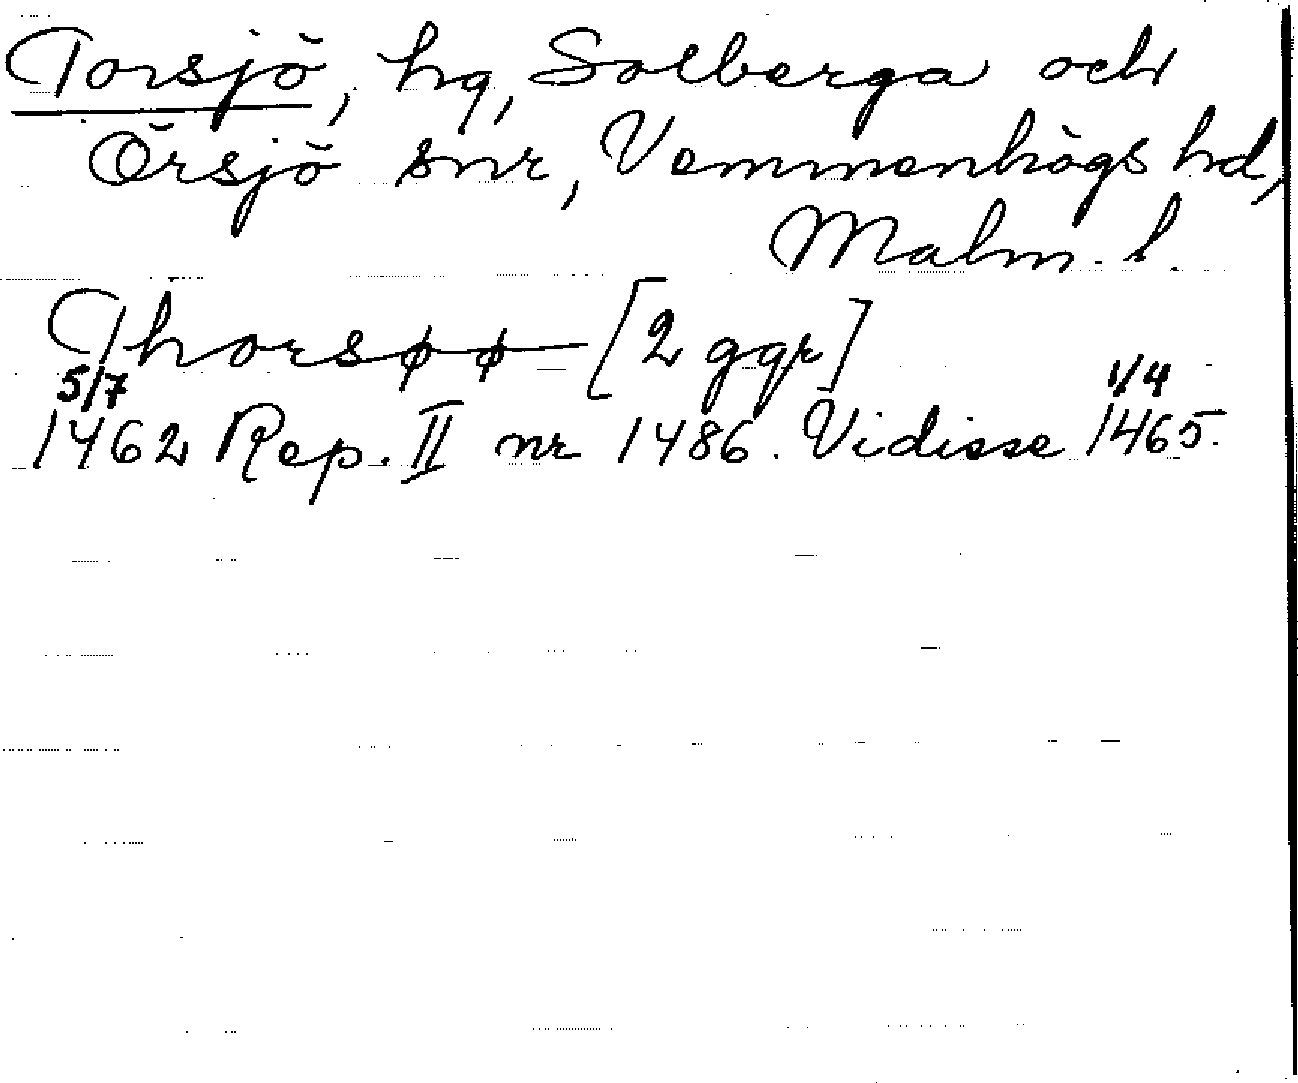 Torsjö, hg, Solberga och
Örsjö snr, Vemmenhögs hd,
Malm. l.
Thorsøø [2 ggr]
5/7 1/4
1462 Rep. II nr 1486. Vidisse 1465.